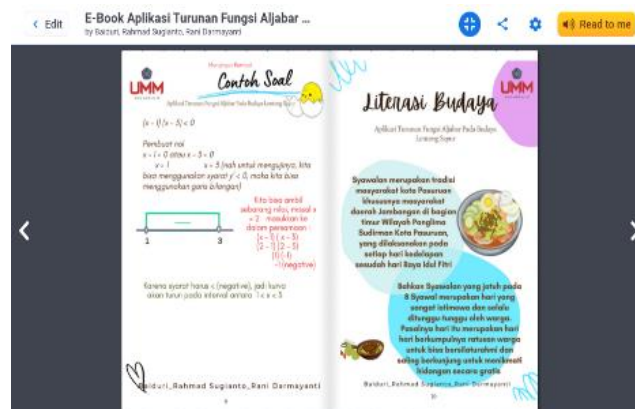 Edit
E-Book Aplikasi Turunan Fungsi Aljabar ...
by Baiduri, Rahmad Sugianto, Rani Darmayanti
Read to me
UMM
Contoh Soal
Aplikasi Turunan Fungsi Aljabar Pada Budaya Lontong Sayur
Pembuat nol
x - 1 = 0 atau x - 3 = 0
x = 1 x = 3 (nah untuk mengujinya, kita
bisa menggunakan syarat y' < 0, maka kita bisa
menggunakan garis bilangan)
Kita bisa ambil
sebarang nilai, misal x
= 2 masukan ke
dalam persamaan
(x - 1) (x - 3)
(2 - 1) (2 - 3)
(1) (-1)
-1 (negative)
1 3
Karena syarat harus < (negative), jadi kurva
akan turun pada interval antara 1 < x < 3
Baiduri_Rahmad Sugianto_Rani Darmayanti
9
UMM
Literasi Budaya
Aplikasi Turunan Fungsi Aljabar Pada Budaya
Lontong Sayur
Syawalan merupakan tradisi
masyarakat kota Pasuruan
khususnya masyarakat
daerah Jambangan di bagian
timur Wilayah Panglima
Sudirman Kota Pasuruan,
yang dilaksanakan pada
setiap hari kedelapan
sesudah hari Raya Idul Fitri
Bahkan Syawalan yang jatuh pada
8 Syawal merupakan hari yang
sangat istimewa dan selalu
ditunggu tunggu oleh warga.
Pasalnya hari itu merupakan hari
hari berkumpulnya ratusan warga
untuk bisa bersilaturahmi dan
saling berkunjung untuk menikmati
hidangan secara gratis
Baiduri_Rahmad Sugianto_Rani Darmayanti
10